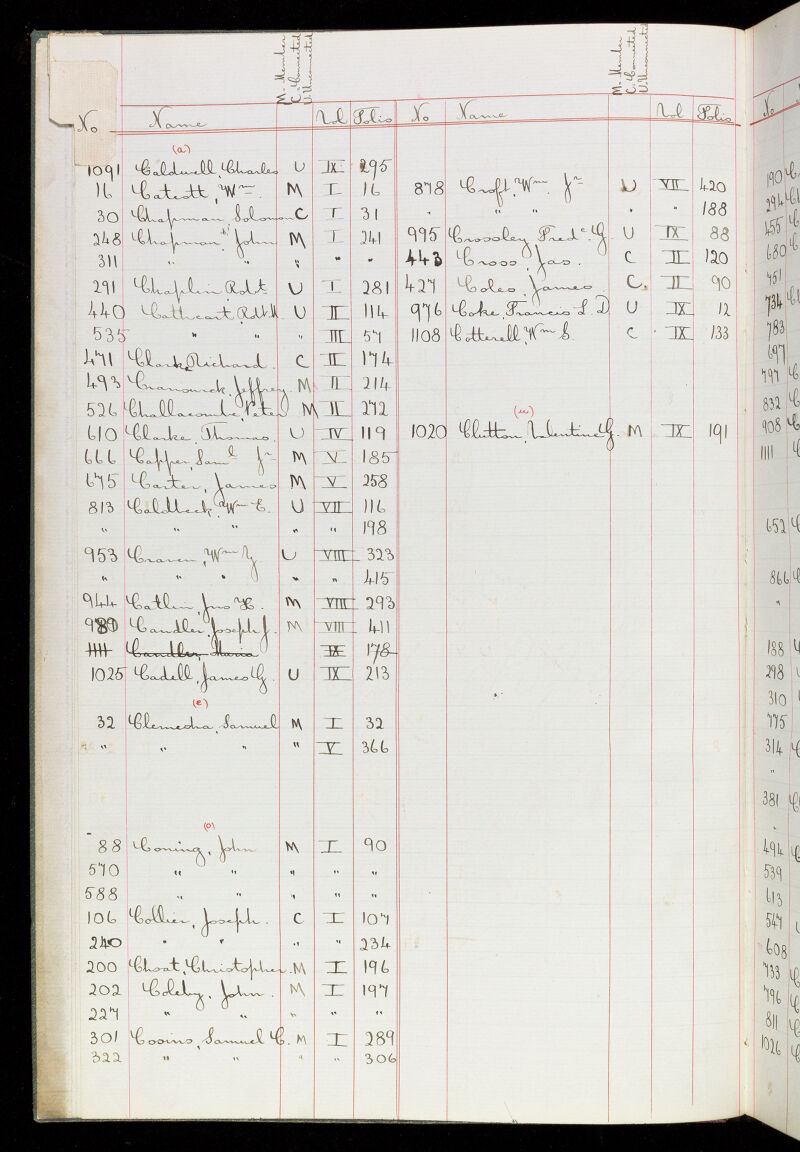 M. Member
C. Connected
U. Unconnected
M. Member
C. Connected
U. Unconnected
No Name Vol Folio No Name Vol Folio
(a)
1091 Caldwell, Charles U IX 295
16 Catcott, Wm. M I 16
30 Chapman Solomon C I 31
248 Chapman, John M I 241
311 " " " " "
291 Chaplin Robt U I 281
440 Cathcart, Robt. H. U II 114
535 " " III 57
471 Clarke Richard. C II 174
493 Jeffrey M II 214
526 Challacombe, Peter M II 272
610 Clarke, Thomas. U IV 119
666 Capper, Saml Jr M V 185
675 Carter, James M V 258
813 Caldbeck, Wm E. U VII 116
" " " " " 198
953 Craven, Wm U VIII 323
" " " " " 415
944 Catlin, Jno H. M VIII 293
989 Candler, Joseph J. M VIII 411
1111 Candler, Maria IX 178
1025 Cadell, James G. U IX 213
(e)
32 Samuel M I 32
" " " " V 366
(o)
88 Coning, John M I 90
570 " " " " "
588 " " " " "
106 Collier, Joseph. C I 107
240 " " " " 234
200 Choat, Christopher. M I 196
202 Coleby, John. M I 197
227 " " " " "
301 Cosins, Samuel C. M I 289
322 " " " " 306
878 Croft, Wm. Jr U VII 420
" " " " " 188
995 Crossley Fredc. G. U IX 88
443 Cross, Jas. C II 120
427 Coles, James C. II 90
976 Coke, Francis L. D U IX 12
1108 Cotterell, Wm S. C IX 133
(u)
1020 Clutton, Valentine G. M IX 191
No
190 C
294 Cl
455 C
680 C
751
734 Cl
783
697
797 C
832 C
908 C
1111 C
652 C
866 C
"
188
298
310
775
314 C
"
381 C
"
494 C
539
613
547
608
733 C
796 C
811 C
1026 C